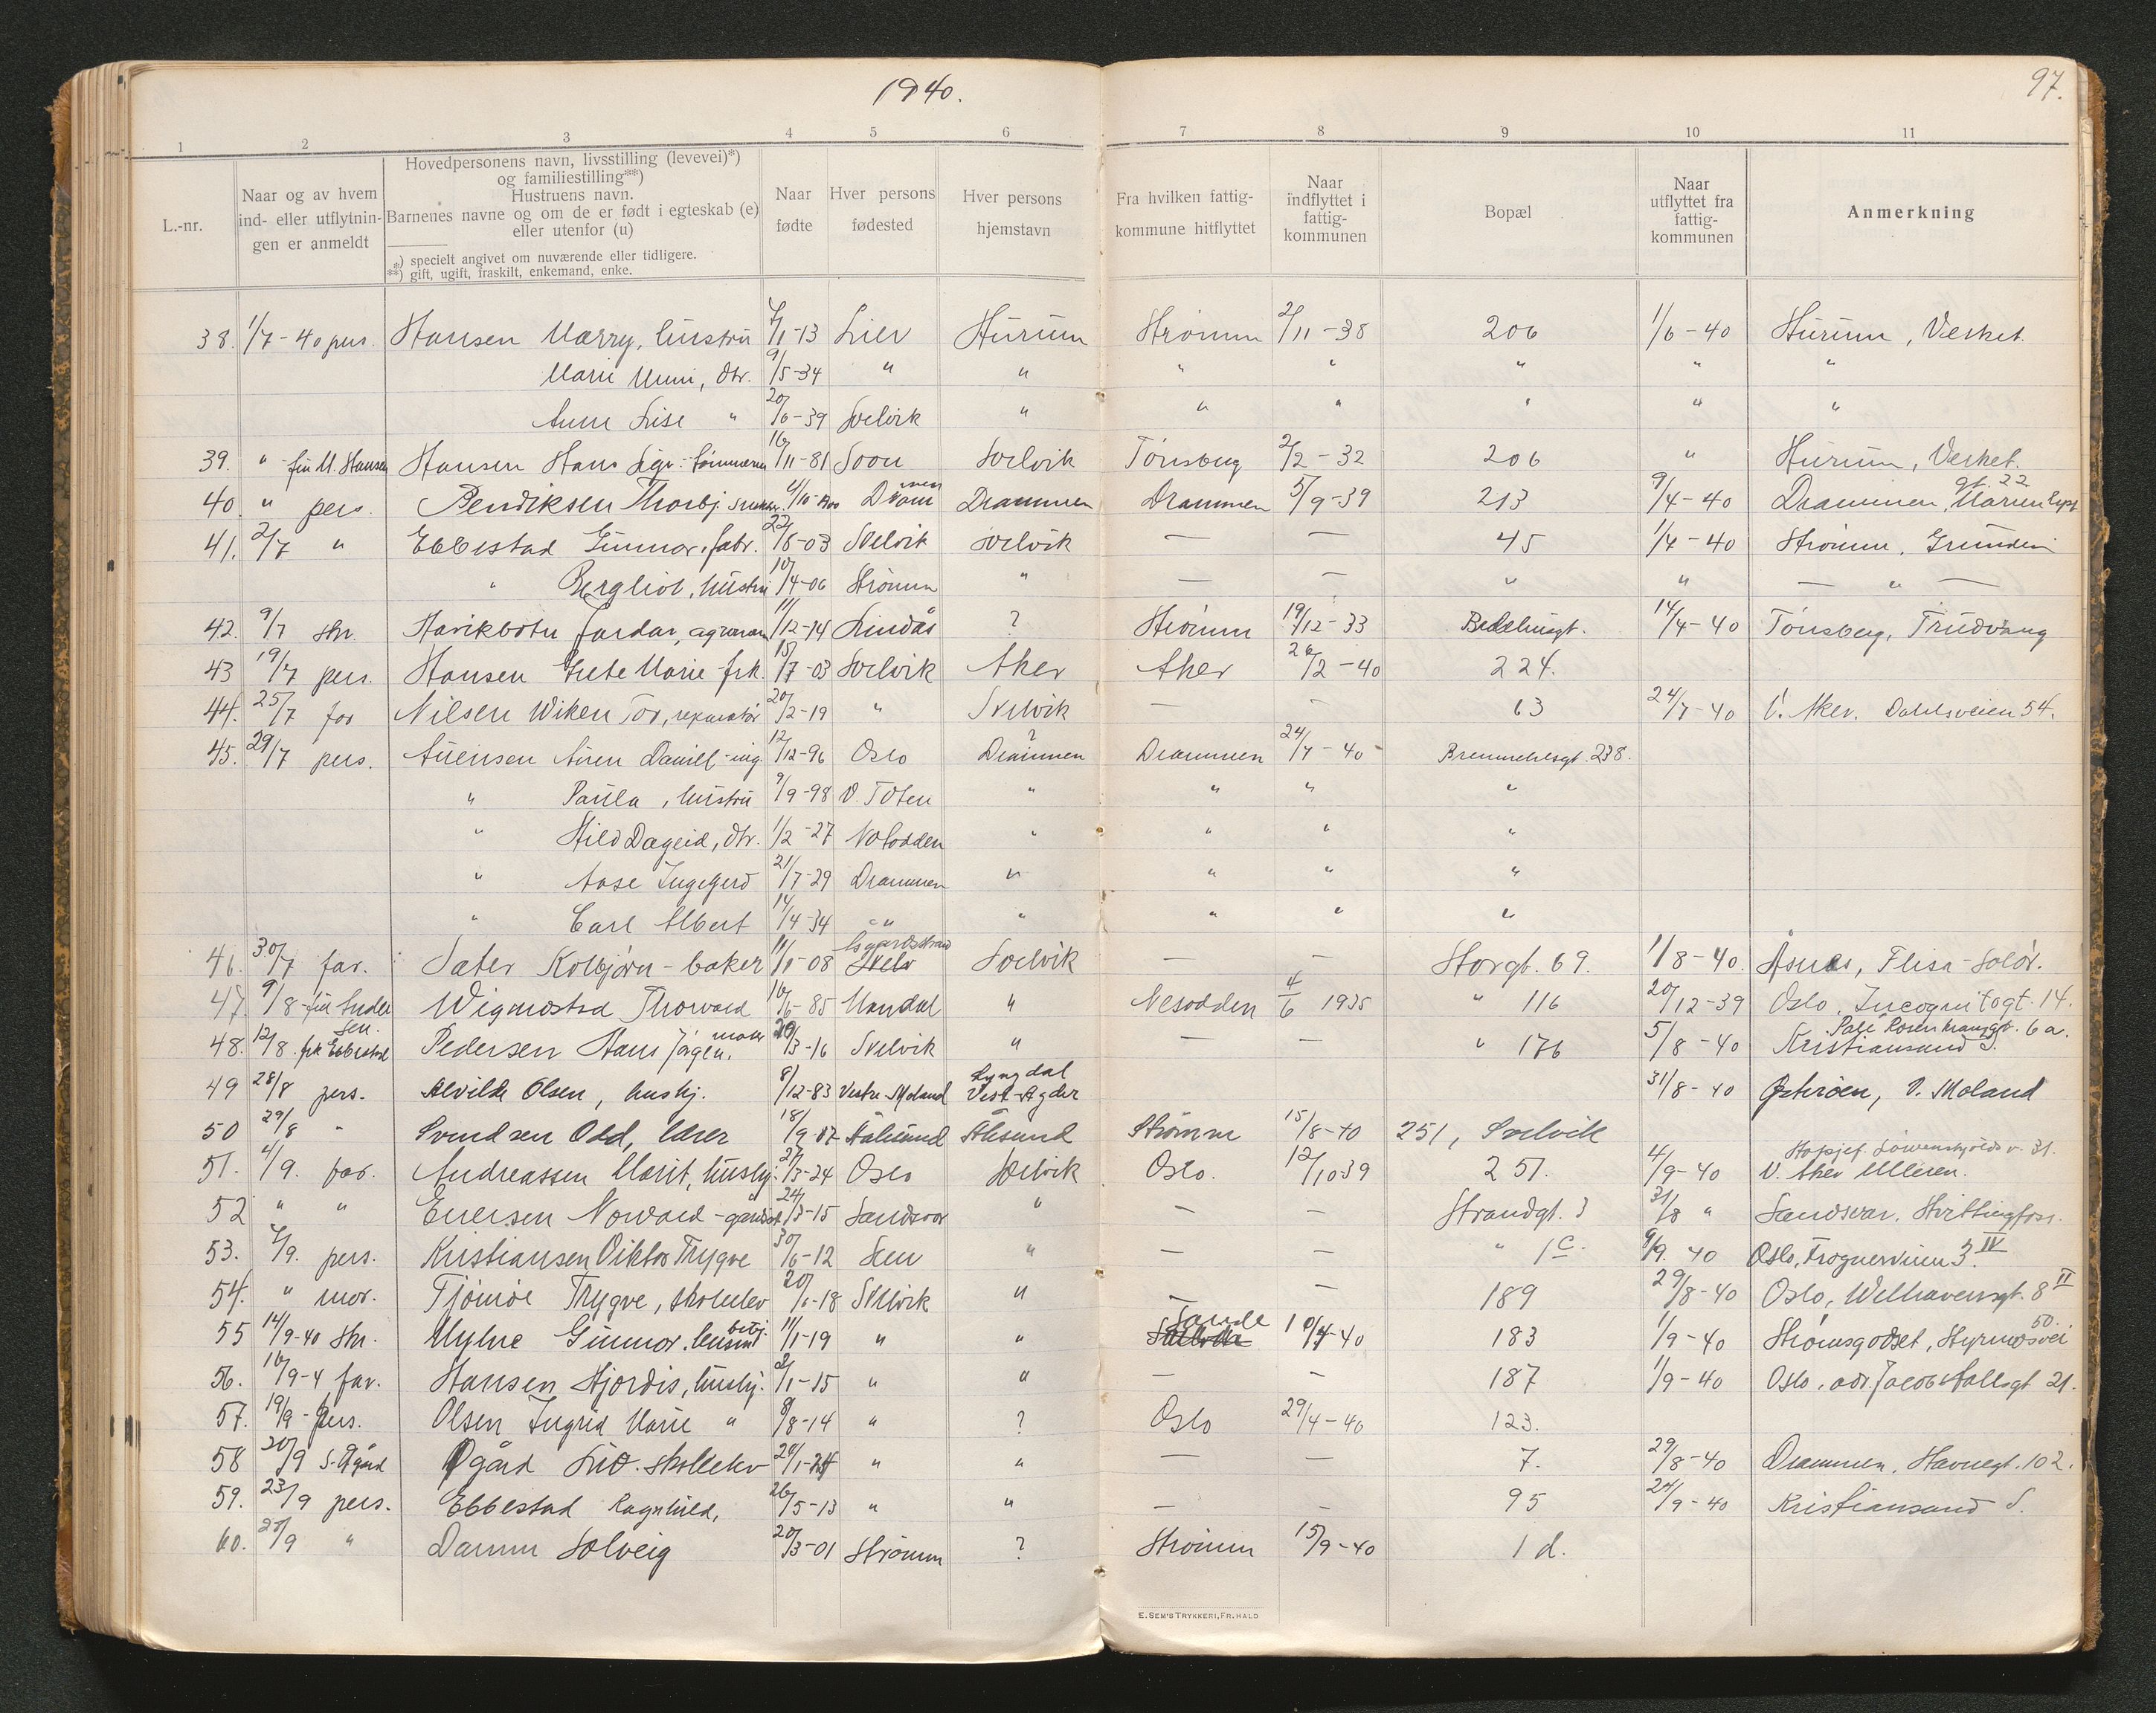 1940.
97.
1 2 3 4 5 6 7 8 9 10 11
L.-nr.
Naar og av hvem ind- eller utflytnin- gen er anmeldt
Hovedpersonens navn, livsstilling (levevei)*)
og familiestilling**)
Hustruens navn.
Barnenes navne og om de er født i egteskab (e)
eller utenfor (u)
*) specielt angivet om nuværende eller tidligere.
**) gift, ugift, fraskilt, enkemand, enke.
Naar fødte
Hver persons fødested
Hver persons hjemstavn
Fra hvilken fattig- kommune hitflyttet
Naar indflyttet i fattig- kommunen
Bopæl
Naar utflyttet fra fattig- kommunen
Anmerkning
38. 1/7-40 pers. Hansen Marry, hustru /1-13 Lier Hurum Strømm 2/11-38 206 1/6-40 Hurum, Verket.
Marie Unni, dtr. 9/5-34 " " " " " " "
Anne Lise " 20/6-39 Svelvik " " " " " "
39. " fru M. Hansen Hansen Hans Sigv. 16/11-81 Soon Svelvik Tönsberg 2/2-32 206 " Hurum, Verket.
40. " pers. Bendiksen Thorbj. /10-1900 Drammen Drammen Drammen 5/9-39 213 9/4-40 Drammen,
41. 2/7 " Ebbestad Gunnar, fabr. 22/8-03 Svelvik Svelvik — — 45 1/4-40 Strömm, Grunden
" Bergliot, hustru 10/4-06 Strömm " — — " " — " —
42. 9/7 skr. Havikbotn Jardar, 11/12-14 Lindås ? Strömm 19/12-33 14/4-40 Tönsberg, Trudvang
43 19/7 pers. Hansen Grete Marie frk. 15/7-03 Svelvik Aker Aker 26/2-40 224.
44. 25/7 far Nilsen Wiken Tor, reparatör 20/2-19 " Svelvik — — 63 24/7-40 V. Aker. Dahlsveien 54.
45. 29/7 pers. Auensen Auen Daniel - ing. 12/12-96 Oslo ? Drammen Drammen 24/7-40 - 238.
" Paula, hustru 9/9-98 V. Toten " " " "
" Hild Dageid, dtr. 1/2-27 Notodden " " " "
" Aase Ingegerd 21/7-29 Drammen " " " "
" Carl Albert 14/4-34 " " " " "
46. 30/7 far. Sæter Kolbjørn - baker 11/1-08 Åsgårdstrand Svelvik — — Storgt. 69. 1/8-40. Åsnes, Flisa - Solör.
47. 9/8 - Wigmostad Thorvald 16/6-85 Mandal " Nesodden 4/6 1935 " 116 20/12-39 Oslo, Incognitogt. 14.
48. 12/8 frk Ebbestad Pedersen Hans Jörgen. /3-16 Svelvik " — — " 176 5/8-40 Kristiansand S. Palé Rosenkranzgt. 6 a.
49 28/8 pers. Alvilde Olsen, hushj. 8/12-83 Vestre-Moland Lyngdal Vest-Agder 31/8-40 V. Moland
50 29/8 " Svendsen Odd, 18/9-07 Ålesund Ålesund Strömm 15/8-40 251, Svelvik
51. 4/9. far. Andreassen Marit, hushj. /3-24 Oslo Svelvik Oslo. 12/10 39 251. 4/9-40 V. Aker Ulleren. Løvenskjolds v. 31.
52 " " Evensen Norvald - 24/3-15 Sandsvær " — — Strandgt. 3 31/8 " Sandsvær. Hvittingfoss.
53. /9. pers. Kristiansen Viktor Trygve 30/6-12 Sem " — — " 1 c. 9/9. 40 Oslo, Frognerveien 3. IV
54. " mor. Tjömöe Trygve, skoleelev 20/ -18 Svelvik " — — 189 29/8-40 Oslo, Welhavensgt. 8 II
55 14/9-40 skr. Myhre Gunnar. 11/1-19 " " Sande 10/4-40 183 1/9-40 Strömsgodset, Styrmosvei 50.
56. 16/9-4 far. Hansen Hjördis, hushj. /1-15 " " — — 187 1/9-40 Oslo, adr. Jacob Aallsgt 21.
57. 19/9 - pers. Olsen Ingrid Marie " /8-14 " ? Oslo 29/4-40 123.
58 20/9 S. Ögård Øgård Liv. skoleelev 24/1- " " — — 7. 29/8-40 Drammen, Havnegt. 102.
59. 23/9 pers. Ebbestad Ragnhild, 26/5-13 " " — — 95 24/9-40 Kristiansand S.
60. 25/9 " Damm Solveig 20/3-01 Strömm ? Strömm 15/9-40 1 d.
E. SEM'S TRYKKERI, FR.HALD